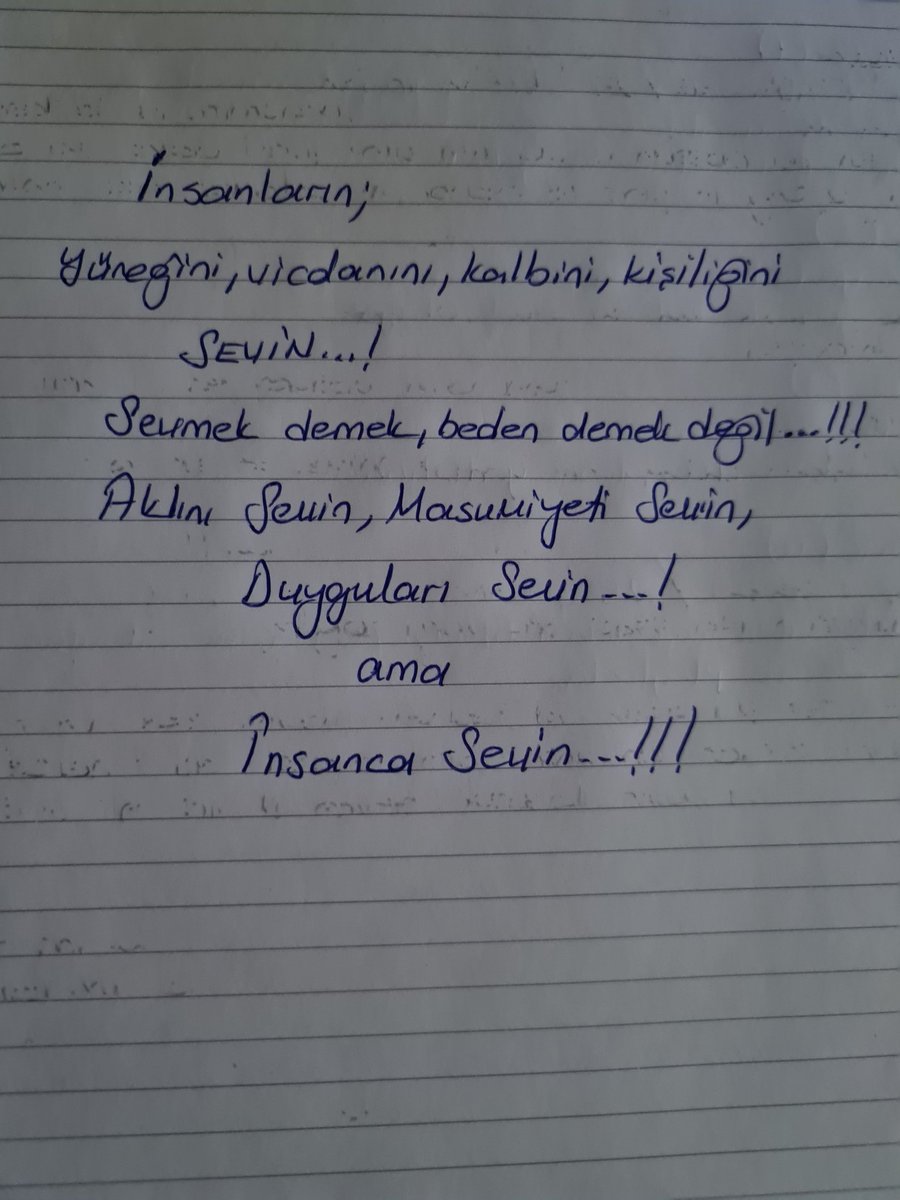 İnsanların;
Yüreğini, vicdanını, kalbini, kişiliğini
SEVİN...!
Sevmek demek, beden demek değil...!!!
Aklını Sevin, Masumiyeti Sevin,
Duyguları Sevin...!
ama
İnsanca Sevin...!!!